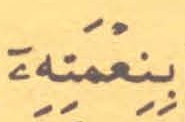 بِنِعْمَتِهِۦٓ